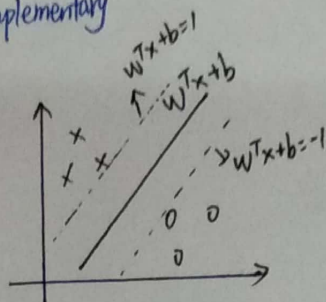 plementary
wᵀx+b=1
wᵀx+b
wᵀx+b=-1